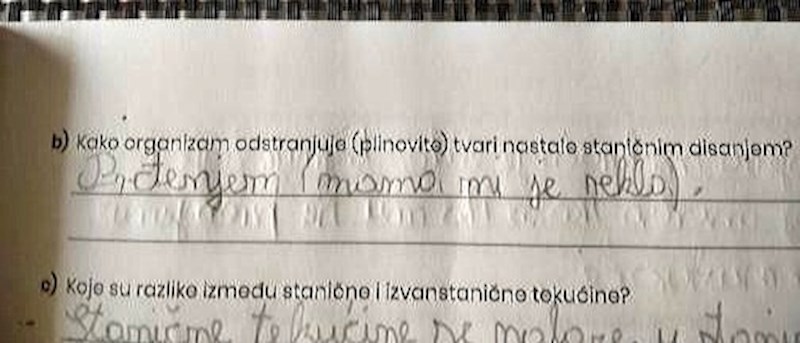 b) Kako organizam odstranjuje (plinovite) tvari nastale staničnim disanjem?
Prdenjem (mama mi je rekla).
c) Koje su razlike između stanične i izvanstanične tekućine?
Stanične tekućine se nalaze u